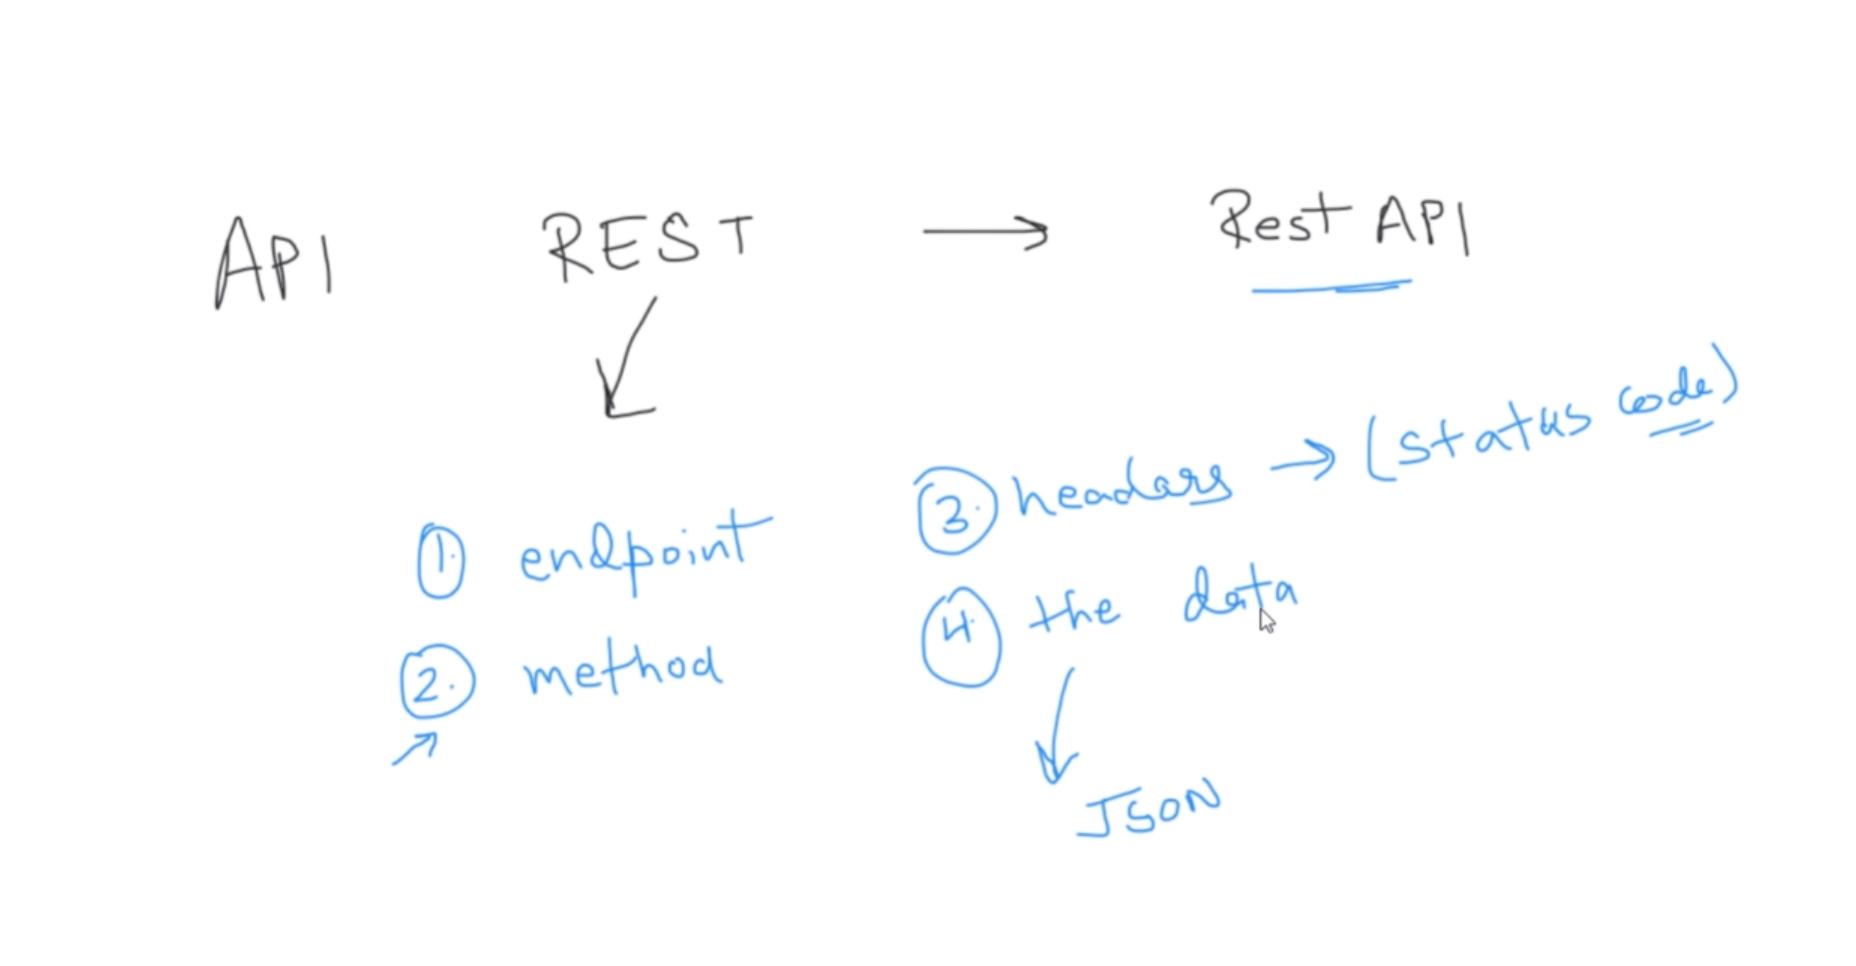 API REST → Rest API
1. endpoint
2. method
3. headers → (status code)
4. the data
JSON